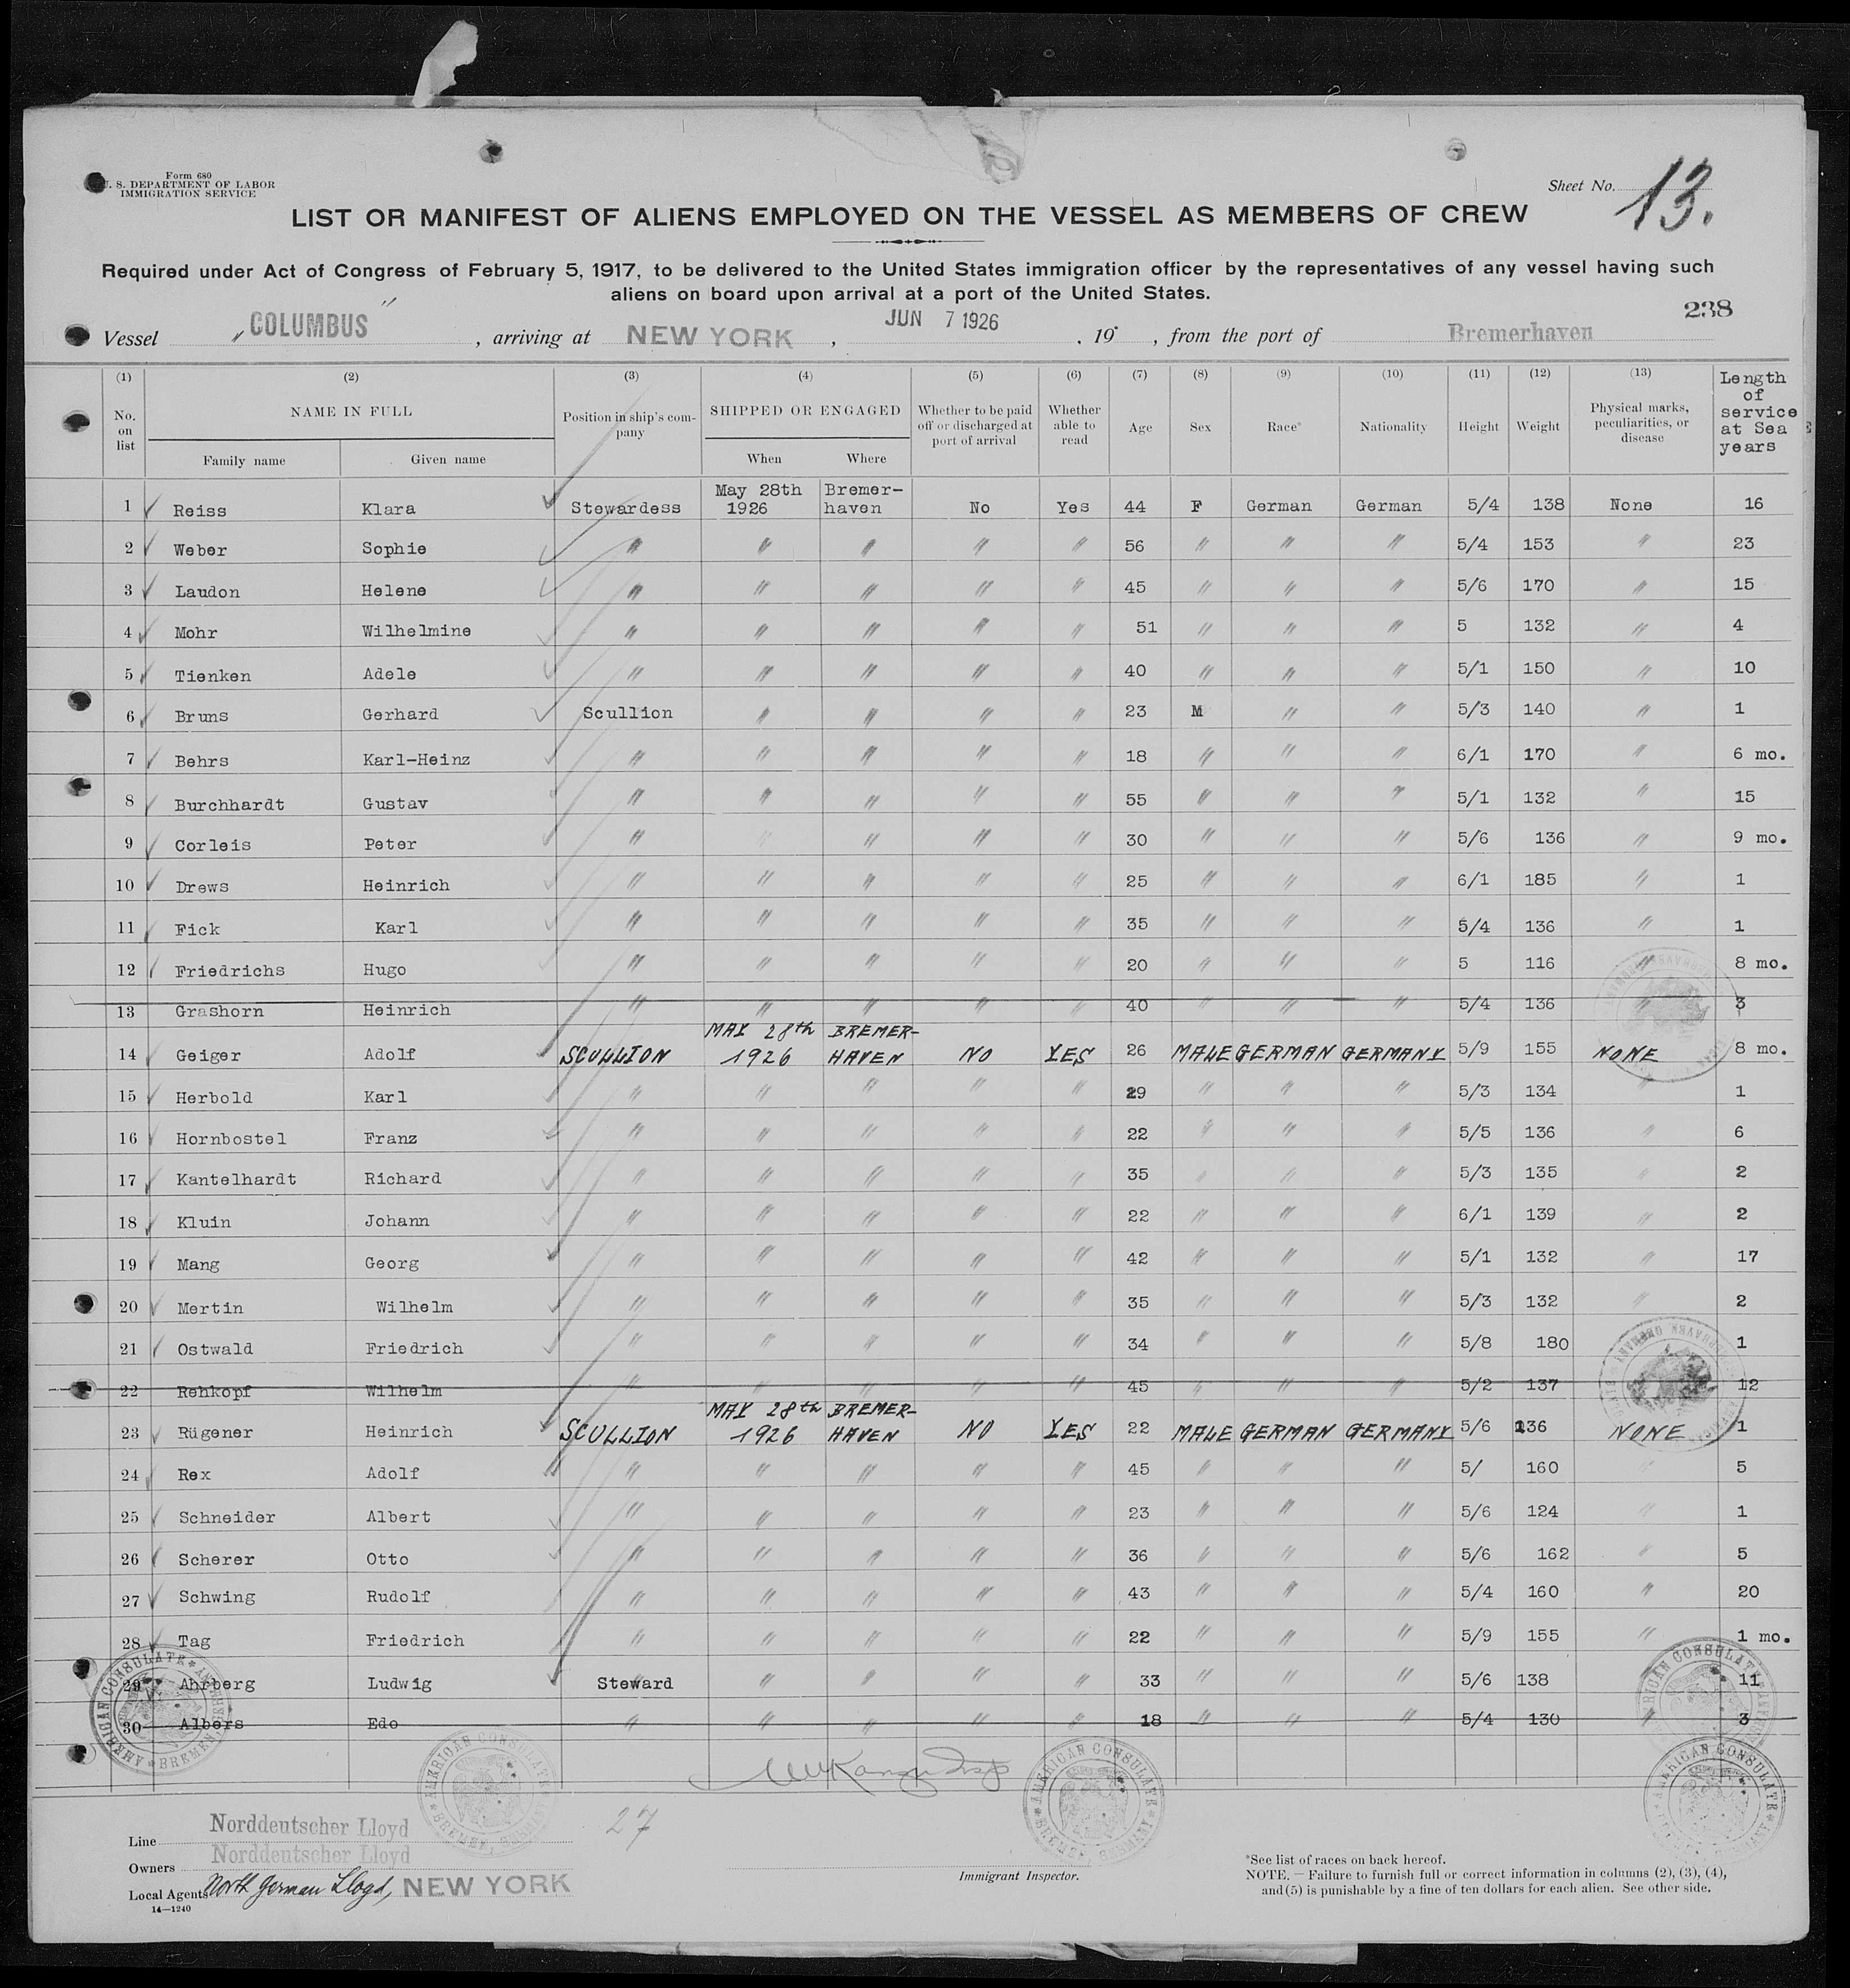 Form 680
U. S. DEPARTMENT OF LABOR
IMMIGRATION SERVICE
Sheet No. 13.
LIST OR MANIFEST OF ALIENS EMPLOYED ON THE VESSEL AS MEMBERS OF CREW
Required under Act of Congress of February 5, 1917, to be delivered to the United States immigration officer by the representatives of any vessel having such
aliens on board upon arrival at a port of the United States.
238
Vessel "COLUMBUS", arriving at NEW YORK, JUN 7 1926, 19 , from the port of Bremerhaven
(1) (2) (3) (4) (5) (6) (7) (8) (9) (10) (11) (12) (13)
No. on list NAME IN FULL Family name Given name Position in ship's company SHIPPED OR ENGAGED When Where Whether to be paid off or discharged at port of arrival Whether able to read Age Sex Race* Nationality Height Weight Physical marks, peculiarities, or disease Length of service at Sea years
1 Reiss Klara Stewardess May 28th 1926 Bremer-haven No Yes 44 F German German 5/4 138 None 16
2 Weber Sophie " " " " " 56 " " " 5/4 153 " 23
3 Laudon Helene " " " " " 45 " " " 5/6 170 " 15
4 Mohr Wilhelmine " " " " " 51 " " " 5 132 " 4
5 Tienken Adele " " " " " 40 " " " 5/1 150 " 10
6 Bruns Gerhard Scullion " " " " 23 M " " 5/3 140 " 1
7 Behrs Karl-Heinz " " " " " 18 " " " 6/1 170 " 6 mo.
8 Burchhardt Gustav " " " " " 55 " " " 5/1 132 " 15
9 Corleis Peter " " " " " 30 " " " 5/6 136 " 9 mo.
10 Drews Heinrich " " " " " 25 " " " 6/1 185 " 1
11 Fick Karl " " " " " 35 " " " 5/4 136 " 1
12 Friedrichs Hugo " " " " " 20 " " " 5 116 " 8 mo.
13 Grashorn Heinrich " " " " " 40 " " " 5/4 136 " 3
14 Geiger Adolf SCULLION MAY 28th 1926 BREMER-HAVEN NO YES 26 MALE GERMAN GERMANY 5/9 155 NONE 8 mo.
15 Herbold Karl " " " " " 29 " " " 5/3 134 " 1
16 Hornbostel Franz " " " " " 22 " " " 5/5 136 " 6
17 Kantelhardt Richard " " " " " 35 " " " 5/3 135 " 2
18 Kluin Johann " " " " " 22 " " " 6/1 139 " 2
19 Mang Georg " " " " " 42 " " " 5/1 132 " 17
20 Mertin Wilhelm " " " " " 35 " " " 5/3 132 " 2
21 Ostwald Friedrich " " " " " 34 " " " 5/8 180 1
22 Rehkopf Wilhelm " " " " " 45 " " " 5/2 137 12
23 Rügener Heinrich SCULLION MAY 28th 1926 BREMER-HAVEN NO YES 22 MALE GERMAN GERMANY 5/6 136 NONE 1
24 Rex Adolf " " " " " 45 " " " 5/ 160 " 5
25 Schneider Albert " " " " " 23 " " " 5/6 124 " 1
26 Scherer Otto " " " " " 36 " " " 5/6 162 " 5
27 Schwing Rudolf " " " " " 43 " " " 5/4 160 " 20
28 Tag Friedrich " " " " " 22 " " " 5/9 155 " 1 mo.
29 Ahrberg Ludwig Steward " " " " 33 " " " 5/6 138 " 11
30 Albers Edo " " " " " 18 " " " 5/4 130 " 3
AMERICAN CONSULATE BREMEN, GERMANY
AMERICAN CONSULATE BREMEN, GERMANY
AMERICAN CONSULATE BREMEN, GERMANY
AMERICAN CONSULATE
AMERICAN CONSULATE
27
Line Norddeutscher Lloyd
Owners Norddeutscher Lloyd
Local Agents North German Lloyd, NEW YORK
14—1240
Immigrant Inspector.
*See list of races on back hereof.
NOTE. — Failure to furnish full or correct information in columns (2), (3), (4),
and (5) is punishable by a fine of ten dollars for each alien. See other side.